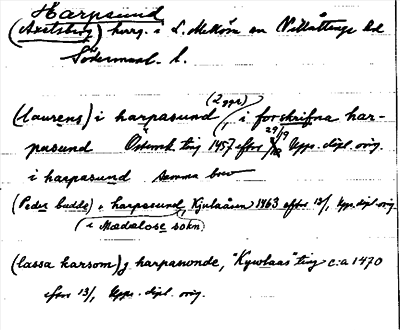 Harpsund
(Axelsberg) herrg. i L. Mellösa sn Villåttinge hd
Södermanl. l.
(2 ggr)
(laurens) i harpasund, i forskrifna har-
29/9
pasund Österrek. ting 1457 efter Upps. dipl. orig.
i harpasund samma brev
(Peder budde) i harpasund, Kjulaåsen 1463 efter 13/1, Upps. dipl. orig.
(i Mædaløse sokn)
(lassa karsom) j harpaswnde, "Kywlaas" ting c:a 1470
efter 13/1, Upps. dipl. orig.